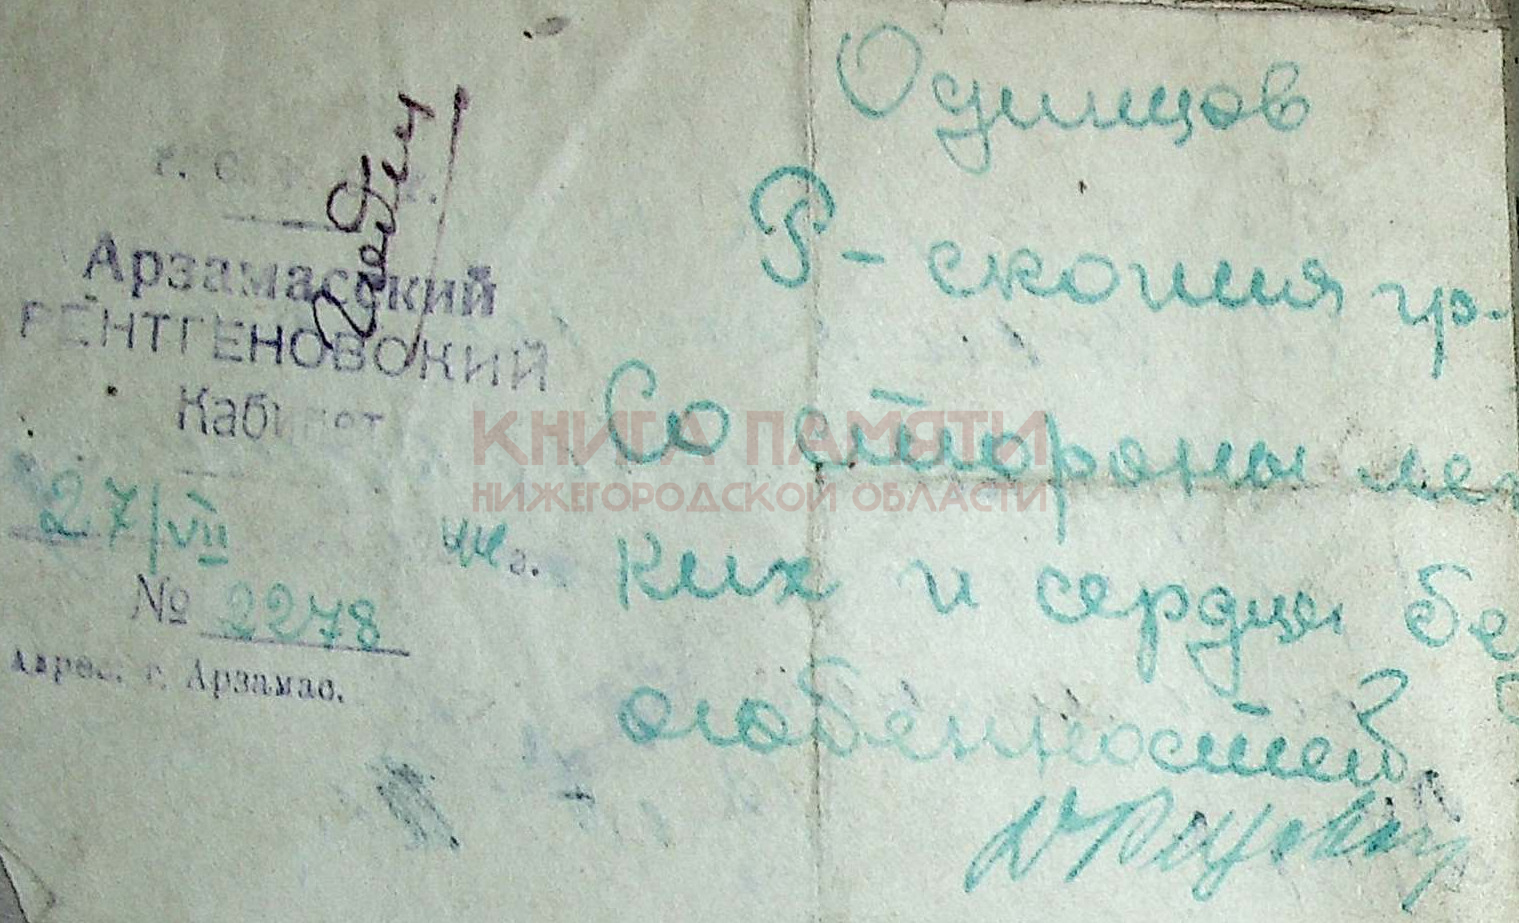 Одинцов
Р-скопия гр-
Со стороны лег
ких и сердца бе
особенностей
Арзамасский
РЕНТГЕНОВСКИЙ
Кабинет
27/VII
№ 2278
Адрес: г. Арзамас.
КНИГА ПАМЯТИ
НИЖЕГОРОДСКОЙ ОБЛАСТИ